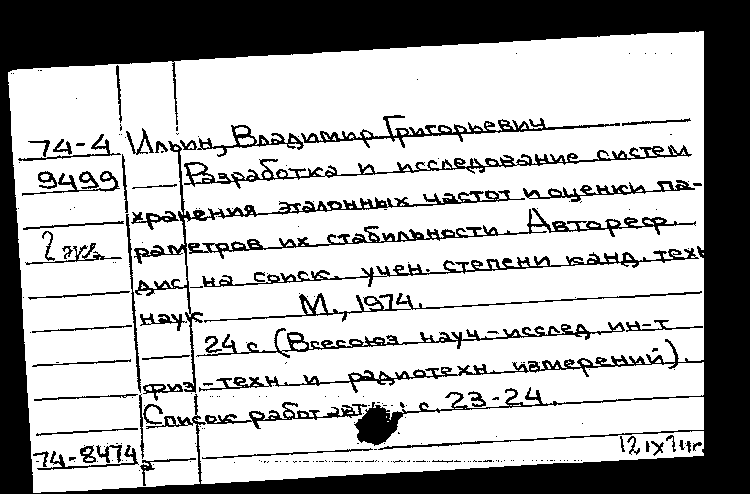 74-4 Ильин, Владимир Григорьевич
9499 Разработка и исследование систем
хранения эталонных частот и оценки па-
2 экз. раметров их стабильности. Автореф.
дис. на соиск. учен. степени канд. техн
наук. М., 1974.
24 с. (Всесоюз. науч.-исслед. ин-т
физ.-техн. и радиотехн. измерений).
Список работ авт.: с. 23-24.
74-8474а 12 IX 74г.